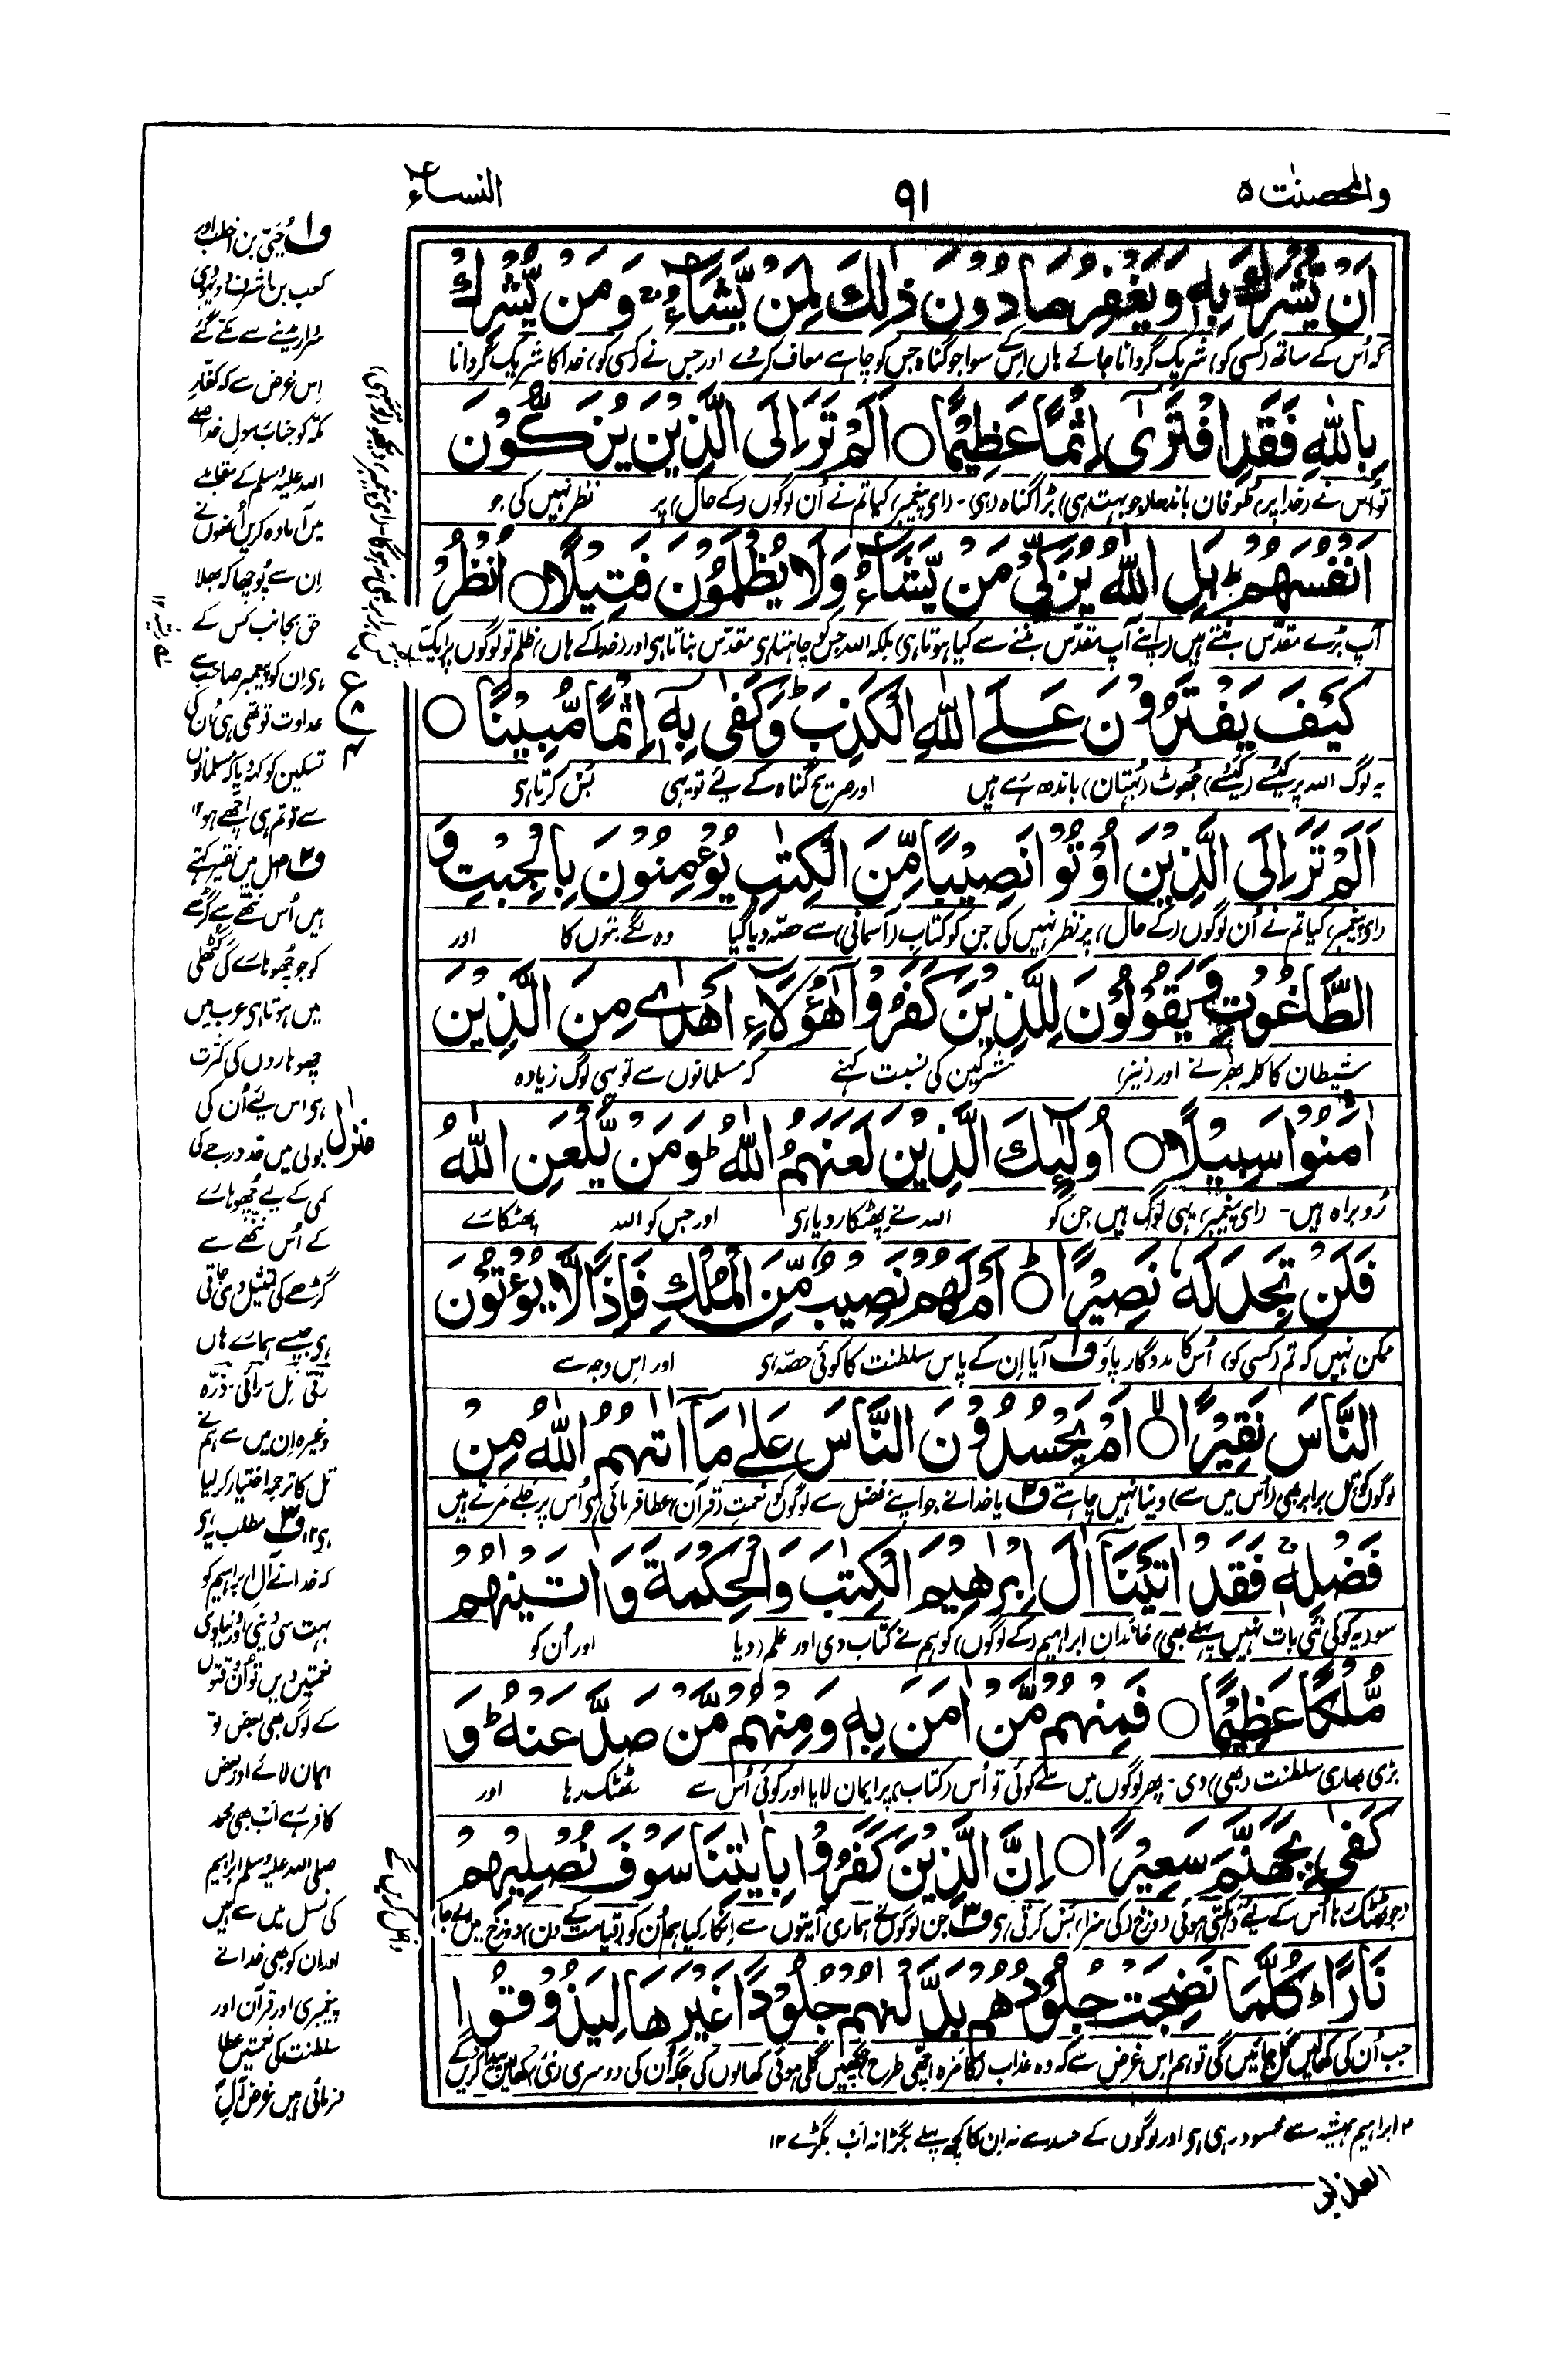 والمحصنٰت ۵
۹۱
النساء ۴
اَنْ يُّشْرَكَ بِهٖ وَيَغْفِرُ مَا دُوْنَ ذٰلِكَ لِمَنْ يَّشَآءُ ۚ وَمَنْ يُّشْرِكْ
کہ اُس کے ساتھ (کسی کو) شریک گردانا جائے ہاں اس کے سوا جو گناہ جس کو چاہے معاف کردے اور جس نے (کسی کو) خدا کا شریک گردانا
بِاللّٰهِ فَقَدِ افْتَرٰٓى اِثْمًا عَظِيْمًا ○ اَلَمْ تَرَ اِلَى الَّذِيْنَ يُزَكُّوْنَ
تو اُس نے (خدا پر) طوفان باندھا (جو بہت ہی) بڑا گناہ (ہی) ۔ (ای پیغمبر) کیا تم نے اُن لوگوں (کے حال) پر نظر نہیں کی جو
اَنْفُسَهُمْ ؕ بَلِ اللّٰهُ يُزَكِّيْ مَنْ يَّشَآءُ وَلَا يُظْلَمُوْنَ فَتِيْلًا ○ اُنْظُرْ
آپ بڑے مقدّس بنتے ہیں (اپنے آپ مقدّس بننے سے کیا ہوتا ہی) بلکہ اللہ جس کو چاہتا ہی مقدّس بناتا ہی اور (خدا کے ہاں) ظلم تو لوگوں پر ایک
كَيْفَ يَفْتَرُوْنَ عَلَى اللّٰهِ الْكَذِبَ ؕ وَكَفٰى بِهٖٓ اِثْمًا مُّبِيْنًا ○
یہ لوگ اللہ پر کیسے (کیسے) جھوٹ (بہتان) باندھ رہے ہیں اور صریح گناہ کے لیے تو یہی بس کرتا ہی
اَلَمْ تَرَ اِلَى الَّذِيْنَ اُوْتُوْا نَصِيْبًا مِّنَ الْكِتٰبِ يُؤْمِنُوْنَ بِالْجِبْتِ وَ
(ای پیغمبر) کیا تم نے اُن لوگوں (کے حال) پر نظر نہیں کی جن کو کتاب (آسمانی) سے حصّہ دیا گیا وہ لگے بتوں کا اور
الطَّاغُوْتِ وَيَقُوْلُوْنَ لِلَّذِيْنَ كَفَرُوْا هٰٓؤُلَآءِ اَهْدٰى مِنَ الَّذِيْنَ
شیطان کا کلمہ بھرنے اور (نیز) مشرکین کی نسبت کہنے کہ مسلمانوں سے تو یہی لوگ زیادہ
اٰمَنُوْا سَبِيْلًا ○ اُولٰٓئِكَ الَّذِيْنَ لَعَنَهُمُ اللّٰهُ ؕ وَمَنْ يَّلْعَنِ اللّٰهُ
رُو براہ ہیں ۔ (ای پیغمبر) یہی لوگ ہیں جن کو اللہ نے پھٹکار دیا ہی اور جس کو اللہ پھٹکارے
فَلَنْ تَجِدَ لَهٗ نَصِيْرًا ○ اَمْ لَهُمْ نَصِيْبٌ مِّنَ الْمُلْكِ فَاِذًا لَّا يُؤْتُوْنَ
ممکن نہیں کہ تم (کسی کو) اُس کا مددگار پاؤ ف۱ آیا اِن کے پاس سلطنت کا کوئی حصّہ ہی اور اس وجہ سے
النَّاسَ نَقِيْرًا ○ اَمْ يَحْسُدُوْنَ النَّاسَ عَلٰى مَآ اٰتٰهُمُ اللّٰهُ مِنْ
لوگوں کو تل برابر بھی (اُس میں سے) دینا نہیں چاہتے ف۲ یا خدا نے جو اپنے فضل سے لوگوں کو نعمتِ (قرآن) عطا فرمائی ہی اُس پر جلے مرتے ہیں
فَضْلِهٖ ۚ فَقَدْ اٰتَيْنَآ اٰلَ اِبْرٰهِيْمَ الْكِتٰبَ وَالْحِكْمَةَ وَاٰتَيْنٰهُمْ
سو (یہ کوئی نئی بات نہیں پہلے بھی) خاندانِ ابراہیم (کے لوگوں) کو ہم نے کتاب دی اور علم (دیا) اور اُن کو
مُّلْكًا عَظِيْمًا ○ فَمِنْهُمْ مَّنْ اٰمَنَ بِهٖ وَمِنْهُمْ مَّنْ صَدَّ عَنْهُ ؕ وَ
بڑی بھاری سلطنت (بھی) دی ۔ پھر لوگوں میں سے کوئی تو اُس (کتاب) پر ایمان لایا اور کوئی اُس سے ٹھٹک رہا اور
كَفٰى بِجَهَنَّمَ سَعِيْرًا ○ اِنَّ الَّذِيْنَ كَفَرُوْا بِاٰيٰتِنَا سَوْفَ نُصْلِيْهِمْ
(جو ٹھٹک رہا) اُس کے لیے دہکتی ہوئی دوزخ (کی سزا) بس کرتی ہی ف۳ جن لوگوں نے ہماری آیتوں سے انکار کیا ہم اُن کو (قیامت کے دن) دوزخ میں لے جا
نَارًا ؕ كُلَّمَا نَضِجَتْ جُلُوْدُهُمْ بَدَّلْنٰهُمْ جُلُوْدًا غَيْرَهَا لِيَذُوْقُوا
جب اُن کی کھالیں گل جائیں گی تو ہم اس غرض سے کہ وہ عذاب (کا مزہ اچھی طرح) چکھیں گلی ہوئی کھالوں کی جگہ اُن کی دوسری (نئی) کھالیں پیدا کریں گے
ف۱ حُیَیّ بن اخطب اور
کعب بن اشرف دو یہودی
مدینے سے مکّے گئے
اِس غرض سے کہ کفارِ
مکہ کو جناب رسولِ خدا صلی
اللہ علیہ وسلم کے مقابلے
میں آمادہ کریں اُنھوں نے
اِن سے پُوچھا کہ بھلا
حق بجانب کس کے
ہی اِن کو پیغمبر صاحب سے
عداوت تو تھی ہی اُن کی
تسکین کو کہہ دیا کہ مسلمانوں
سے تو تم ہی اچھے ہو ۱۲
ف۲ اصل میں نقیر کہتے
ہیں اُس ننھے سے گڑھے
کو جو چھوہارے کی گٹھلی
میں ہوتا ہی عرب میں
چھوہاروں کی کثرت
ہی اس لیے اُن کی
بولی میں حد درجے کی
کمی کے لیے چھوہارے
کے اُس ننھے سے
گڑھے کی تمثیل دی جاتی
ہی جیسے ہمارے ہاں
رتّی ۔ تِل ۔ رائی ۔ ذرّہ
وغیرہ اِن میں سے ہم نے
تل کا ترجمہ اختیار کر لیا
ہی ۱۲ ف۳ مطلب یہ ہی
کہ خدا نے آلِ ابراہیم کو
بہت سی دینی اور دنیاوی
نعمتیں دیں تو اُن وقتوں
کے لوگ بھی بعض تو
ایمان لائے اور بعض
کافر رہے اب بھی محمد
صلی اللہ علیہ وسلم ابراہیم
کی نسل میں سے ہیں
اور ان کو بھی خدا نے
پیغمبری اور قرآن اور
سلطنت کی نعمتیں عطا
فرمائی ہیں غرض آلِ
منزل ۱
ع
۴
۲ ابراہیم ہمیشہ سے محسود رہی ہی اور لوگوں کے حسد سے نہ اِن کا کچھ پہلے بگڑا نہ اب بگڑے ۱۲
العذاب